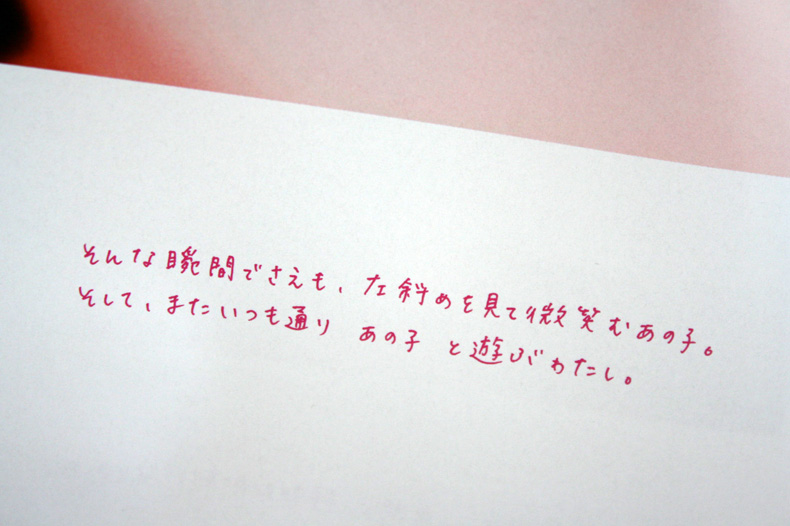 そんな瞬間でさえも、左斜めを見て微笑むあの子。
そして、またいつも通り あの子 と遊ぶわたし。